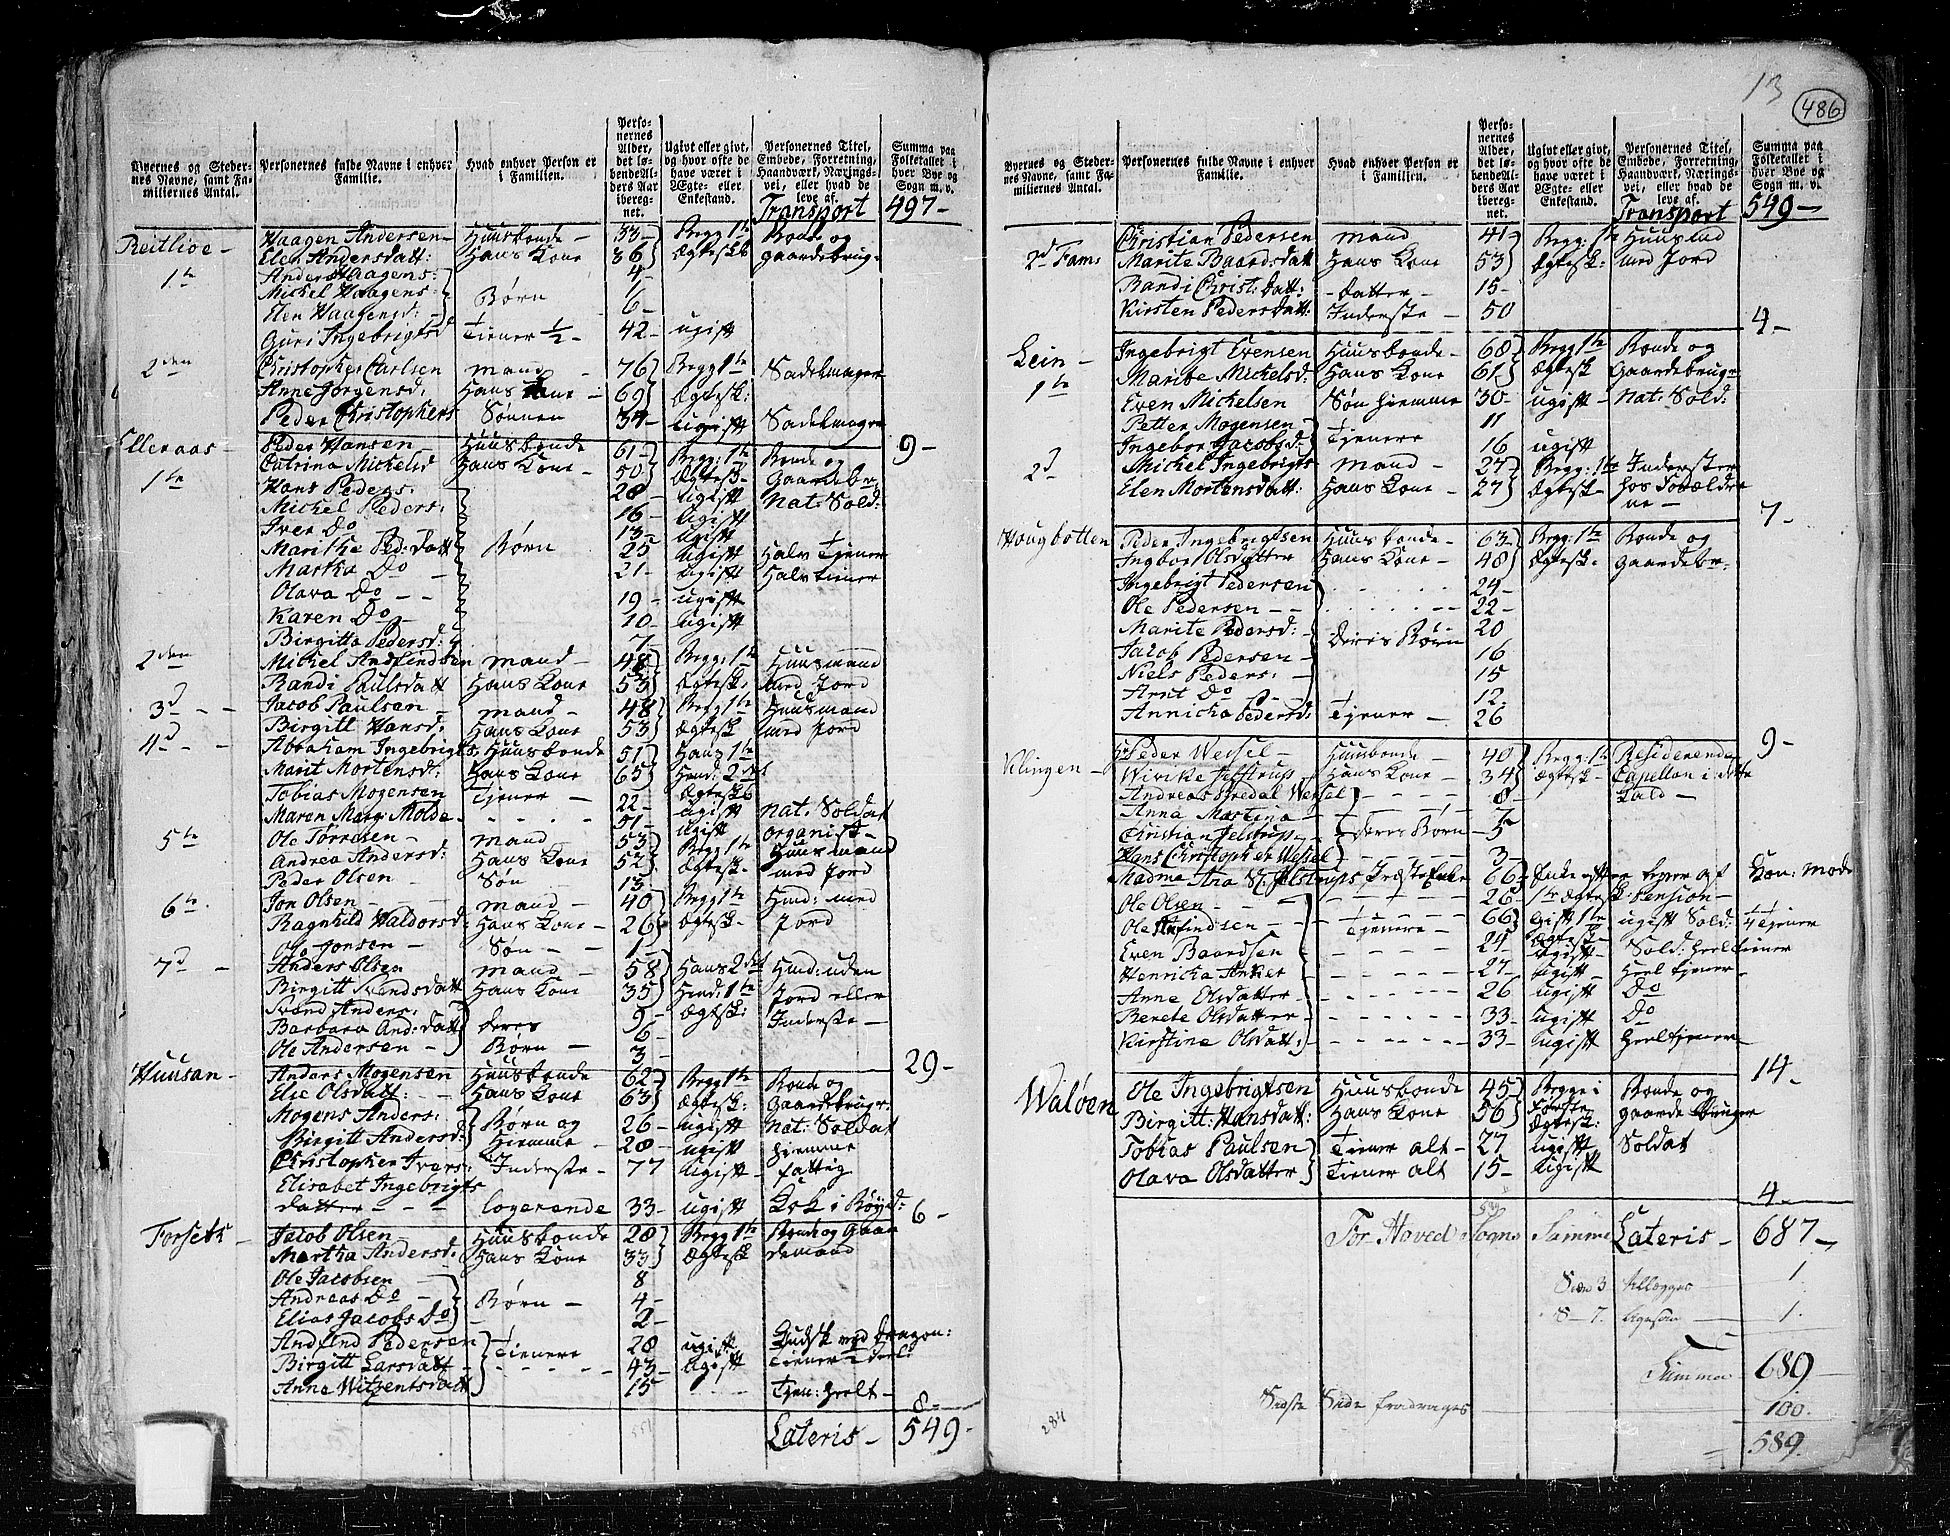 Byernes og Steder-nes Navne, samt Fa-miliernes Antal.
Personernes fulde Navne i enhver Familie.
Hvad enhver Person er i Familien.
Perso-nernes Alder, det lø-bende Al-ders Aar ibereg-net.
Ugivt eller givt, og hvor ofte de have været i Ægte- eller Enkestand.
Personernes Titel, Embede, Forretning, Haandværk, Nærings-vei, eller hvad de leve af.
Summa paa Folketallet i hver Bye og Sogn m. v.
Transport 497-
Reitlioe - Haagen Andersen - Huusbonde - 33 - Begg 1te Bonde og
Elen Andersdatt: Hans Kone 36 Ægtesk gaardebrug-
1te Anders Haagens: 4
Michel Haagens: Børn 1
Elen Haagensd: - 6 -
Guri Ingebrigtsd Tiener 1/2 - 42 - ugift
2den Christopher Carlsen mand - 76 Begg 1te Sadelmager
Anne Jørgensd: Hans Kone - 69 Ægtesk:
Peder Christophers Sønnen 34 - ugift Sadelmager
9 -
Elleraas - Peder Hansen - Huusbonde 61 - Begg: 1te Bonde og
1te Catrina Michelsd Hans Kone - 50 Ægtesk - Gaardebr
Hans Peders: 28 - Ugift Nat: Sold:
Michel Peders: 16 - Ugift
Iver Do 13 - Ugift
Marithe Ped: Datt Børn 25 Ugift Halv Tjener
Martha Do - 21 - Ugift Halv tiener
Olava Do - - 19 - ugift
Karen Do - 10 - Ugift
Birgitta Pedersd: 7
2den Michel Andfindsen mand - 48 Begg: 1te Huusmand
Randi Paulsdatt Hans Kone 53 Ægtesk: med Jord
3d - - Jacob Paulsen - mand - 48 Begg 1te Huusmand
Birgitt Hansd: Hans Kone 53 Ægtesk med Jord
4d - - Abraham Ingebrigts Huusbonde 51 Hans 1te
Marit Mortensd: Hans Kone 65 Hend: 2det
Tobias Mogensen Tjener - 22 - Ægtesk ugift Nat: Soldat
Maren Marg: Molde - 51 - ugift organist -
5te Ole Torresen - mand 53 Begg 1te Huusmand
Andrea Andersd: Hans Kone 52 Ægtesk - med Jord
Peder Olsen - Søn - 13
6te Jon Olsen - mand - 40 Begg 1te Hmd: med
Ragnhild Haldorsd: Hans Kone - 26 Ægtesk Jord
Ole Jonsen - Søn - 1 -
7d - Anders Olsen mand - 58 Hans 2det Hmd: uden
Birgitt Svendsdatt Hans Kone 35 Hend: 1te Jord eller
Svend Anders: 9 - Ægtesk: Inderste -
Barbara And: Datt deres 6
Ole Andersen - Børn - 3 -
29 -
Huusan - Anders Mogensen Huusbonde 62 Begg 1te Bonde og
Else Olsdatt: - - Hans Kone 63 Ægtesk: Gaardebruger
Mogens Anders: Børn og 26 - ugift nat: Soldat
Birgitt Andersd: Hiemme - 28 - ugift hiemme
Christopher Ivers: Inderste - 77 Ugift - fattig
Elisabet Ingebrigts
datter - - - logerende 33 - ugift
6 -
Forseth - Jacob Olsen Huusbonde 28 Begg 1te Bonde og Gaar
Martha Andersd: Hans Kone 33 Ægtesk demand
Ole Jacobsen - 8
Andreas Do - Børn - 4 -
Elias Jacobs Do 2 -
Andfind Pedersen Tienere 28 ugift
Birgitt Larsdatt - 43 - Ugift
Anne Witzentsdatt 15 Tjen: heelt -
8 -
Lateris - 549 -
13
486
Byernes og Steder-nes Navne, samt Fa-miliernes Antal.
Personernes fulde Navne i enhver Familie.
Hvad enhver Person er i Familien.
Perso-nernes Alder, det lø-bende Al-ders Aar ibereg-net.
Ugivt eller givt, og hvor ofte de have været i Ægte- eller Enkestand.
Personernes Titel, Embede, Forretning, Haandværk, Nærings-vei, eller hvad de leve af.
Summa paa Folketallet i hver Bye og Sogn m. v.
Transport 549 -
2d Fam: Christian Pedersen mand 41 Begg: 1te Huusmd
Marite Baardsdatt Hans Kone 53 Ægtesk: med Jord
Randi Christ: Datt: - datter - 15 -
Kirsten Pedersdatt: Inderste - 50
4 -
Lein - Ingebrigt Evensen Huusbonde - 68 Begg 1te Bonde og
1te Marite Michelsd: Hans Kone 61 Ægtesk Gaardebruger
Even Michelsen Søn hiemme 30 ugift - Nat: Sold:
Petter Mogensen - Tjenere 11
Ingebor Jacobsd: 16 ugift
2d Michel Ingebrigts mand - 27 Begg: 1te Inderster
Elen Mortensdatt: Hans Kone - 27 Ægtesk - hos Foræld
ne -
7 -
Hougbotten Peder Ingebrigtsen Huusbonde - 63 Begg: 1te Bonde og
Ingbor Olsdatter Hans Kone - 48 Ægtesk: gaardebr:
Ingebrigt Pedersen 24 -
Ole Pedersen - - 22 -
Marite Pedersd: - Deres Børn 20
Jacob Pedersen - 16
Niels Peders: - 15
Arnt Do - 12
Annicka Pedersd: Tjener - 26
9 -
Klingen - Hr Peder Wessel - Huusbonde 40 Begg: 1te Residerende
Wivike Jelstrup - Hans Kone - 34 Ægtesk - Capellan i dette
Andreas Bredal Wessel 8 - Kald -
Anna Martina -
Christian Jelstrup - Deres Børn - 5
Hans Christopher Wessel 3
Madme Ana Jelstrups Præste Enke 66 - Pension -
Ole Olsen - 26
Ole Arfindsen - Tjenere - 66
Even Baardsen 24 - ugift - Sold: heel tiener
Henricha Anker 27 - Ugift - Heel tjener -
Anne Olsdatter - 26 ugift Do
Berete Olsdatter - 33 - ugift Do
Kirstine Olsdatt: 33 - Ugift Heel tjener -
14 -
Waløen Ole Ingebrigtsen Huusbonde 45 Begge i Bonde og
Birgitt: Hansdatt: Hans Kone 56 Første Ægtesk: gaardebruger
Tobias Paulsen Tiener alt - 27 ugift Soldat
Olava Olsdatter Tiener alt 15 - Ugift
4 -
For Hoved Sogn Summe Lateris - 687 -
1
8 - 7. 1.
Summa 689 -
Sidste Side fradrages 100.
284
589.